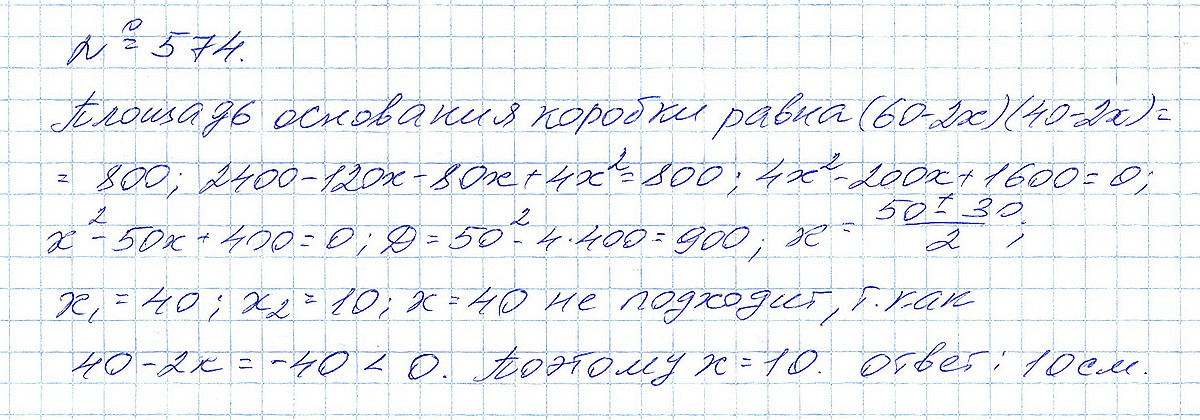 № 574.
Площадь основания коробки равна (60-2x)(40-2x)=
= 800; 2400-120x-80x+4x²=800; 4x²-200x+1600=0;
x²-50x+400=0; Д=50²-4·400=900; x=(50±30)/2;
x₁=40; x₂=10; x=40 не подходит, т.как
40-2x=-40<0. Поэтому x=10. ответ: 10см.